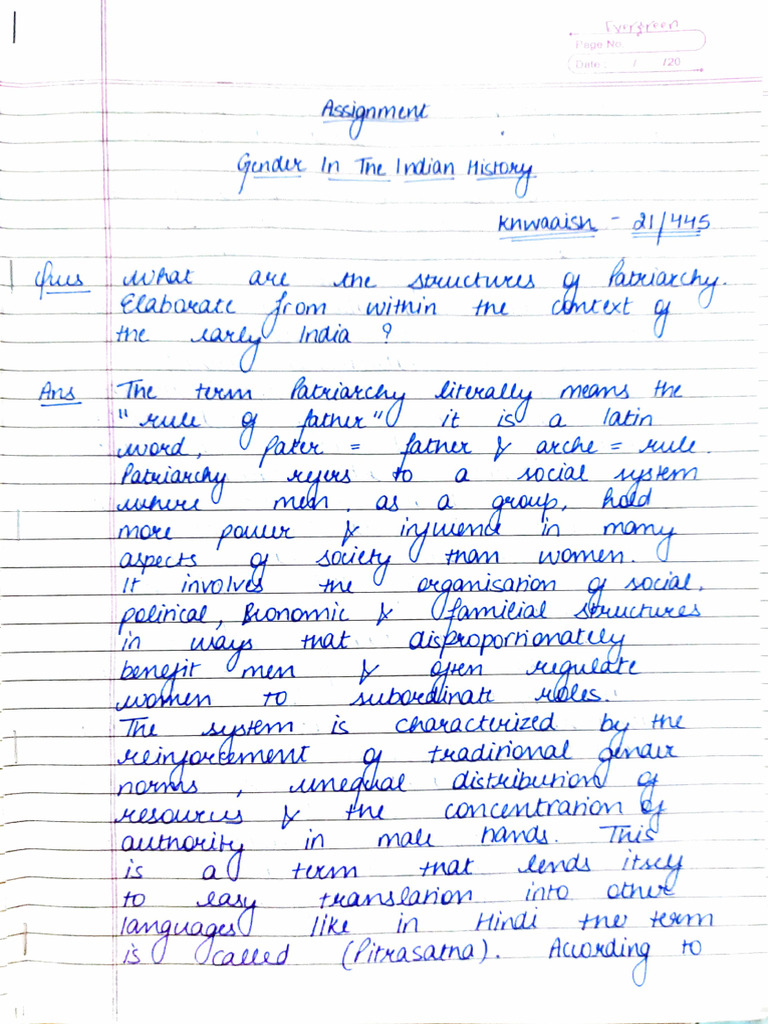 Evergreen
Page No.
Date : / /20
Assignment
Gender In The Indian History
Khwaaish - 21/445
Ques What are the structures of Patriarchy.
Elaborate from within the context of
the early India ?
Ans The term Patriarchy literally means the
"rule of father" it is a latin
word, Pater = father & arche = rule.
Patriarchy refers to a social system
where men, as a group, hold
more power & influence in many
aspects of society than women.
It involves the organisation of social,
political, Economic & familial structures
in ways that disproportionately
benefit men & often regulate
women to subordinate roles.
The system is characterized by the
reinforcement of traditional gender
norms, unequal distribution of
resources & the concentration of
authority in male hands. This
is a term that lends itself
to easy translation into other
languages like in Hindi the term
is called (Pitrasatna). According to